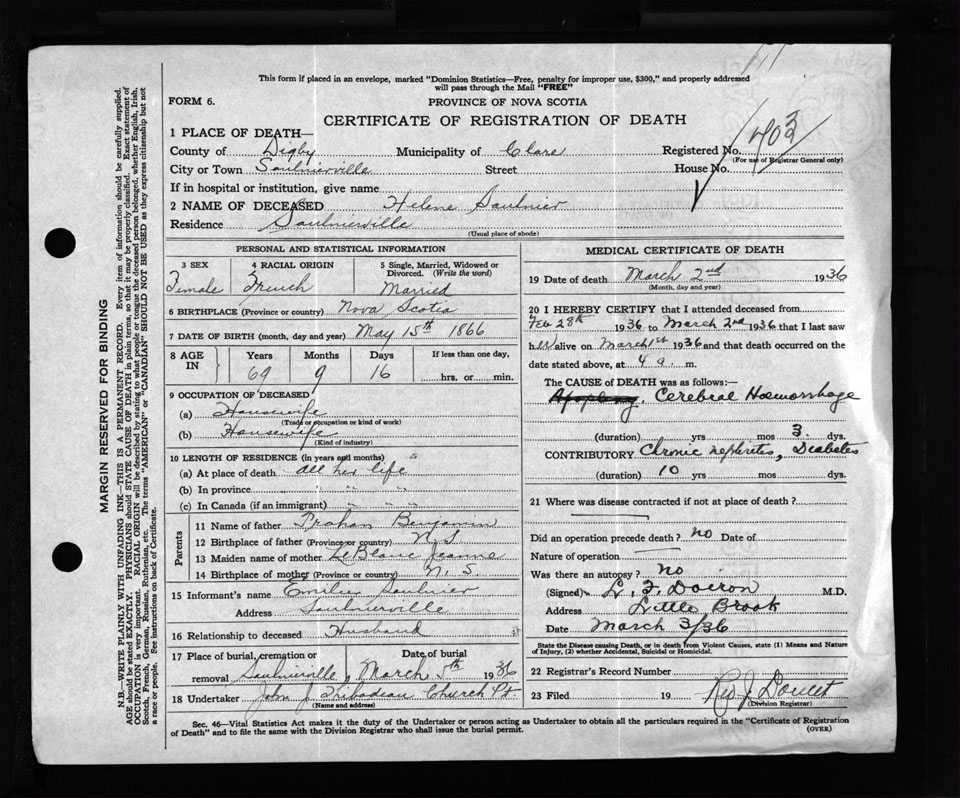 This form if placed in an envelope, marked "Dominion Statistics—Free, penalty for improper use, $300," and properly addressed
will pass through the Mail "FREE"
FORM 6.
PROVINCE OF NOVA SCOTIA
CERTIFICATE OF REGISTRATION OF DEATH
1 PLACE OF DEATH—
County of Digby Municipality of Clare Registered No. 403
(For use of Registrar General only)
City or Town Saulnierville Street House No.
If in hospital or institution, give name
2 NAME OF DECEASED Helene Saulnier
Residence Saulnierville
(Usual place of abode)
PERSONAL AND STATISTICAL INFORMATION
3 SEX 4 RACIAL ORIGIN 5 Single, Married, Widowed or
Divorced. (Write the word)
Female French Married
6 BIRTHPLACE (Province or country) Nova Scotia
7 DATE OF BIRTH (month, day and year) May 15th 1866
8 AGE IN Years Months Days If less than one day,
69 9 16 hrs. or min.
9 OCCUPATION OF DECEASED
(a) Housewife
(Trade or occupation or kind of work)
(b) Housewife
(Kind of industry)
10 LENGTH OF RESIDENCE (in years and months)
(a) At place of death all her life
(b) In province " "
(c) In Canada (if an immigrant) " "
Parents
11 Name of father Benjamin
12 Birthplace of father (Province or country) N.S
13 Maiden name of mother LeBlanc Jeanne
14 Birthplace of mother (Province or country) N. S.
15 Informant's name Saulnier
Address Saulnierville
16 Relationship to deceased Husband
17 Place of burial, cremation or Date of burial
removal Saulnierville, March 5th 1936
18 Undertaker John J. Thibodeau Church Pt
(Name and address)
MEDICAL CERTIFICATE OF DEATH
19 Date of death March 2nd 1936
(Month, day and year)
20 I HEREBY CERTIFY that I attended deceased from
Feb 28th 1936 to March 2nd 1936 that I last saw
her alive on March 1st 1936 and that death occurred on the
date stated above, at 4 a. m.
The CAUSE of DEATH was as follows:
Apoplexy, Cerebral Hæmorrhage
(duration) yrs mos 3 dys.
CONTRIBUTORY Chronic nephritis, Diabetes
(duration) 10 yrs mos dys.
21 Where was disease contracted if not at place of death?
Did an operation precede death? no Date of
Nature of operation
Was there an autopsy? no
(Signed) Doiron M.D.
Address Little Brook
Date March 3/36
State the Disease causing Death, or in death from Violent Causes, state (1) Means and Nature
of Injury, (2) whether Accidental, Suicidal or Homicidal.
22 Registrar's Record Number
23 Filed 19 Rev J. Doucet
(Division Registrar)
Sec. 46—Vital Statistics Act makes it the duty of the Undertaker or person acting as Undertaker to obtain all the particulars required in the "Certificate of Registration
of Death" and to file the same with the Division Registrar who shall issue the burial permit.
(OVER)
MARGIN RESERVED FOR BINDING
N.B.—WRITE PLAINLY WITH UNFADING INK—THIS IS A PERMANENT RECORD. Every item of information should be carefully supplied.
AGE should be stated EXACTLY. PHYSICIANS should STATE CAUSE OF DEATH in plain terms, so that it may be properly classified. Exact statement of
OCCUPATION is very important. RACIAL ORIGIN will be described by stating to what people or tongue the deceased person belonged, whether English, Irish,
Scotch, French, German, Russian, Ruthenian, etc. The terms "AMERICAN" or "CANADIAN" SHOULD NOT BE USED as they express citizenship but not
a race or people. See instructions on back of Certificate.